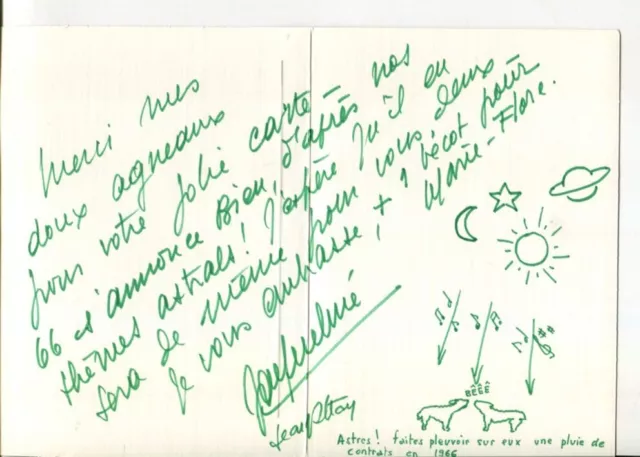 Merci mes
doux agneaux
pour votre jolie carte —
66 s'annonce Bien, d'après nos
thèmes astrals! J'espère qu'il en
sera de même pour vous deux —
Je vous embrasse, + 1 bécot pour
Marie-Flore.
Jacqueline
BÊÊÊ
Astres! faites pleuvoir sur eux une pluie de
contrats en 1966